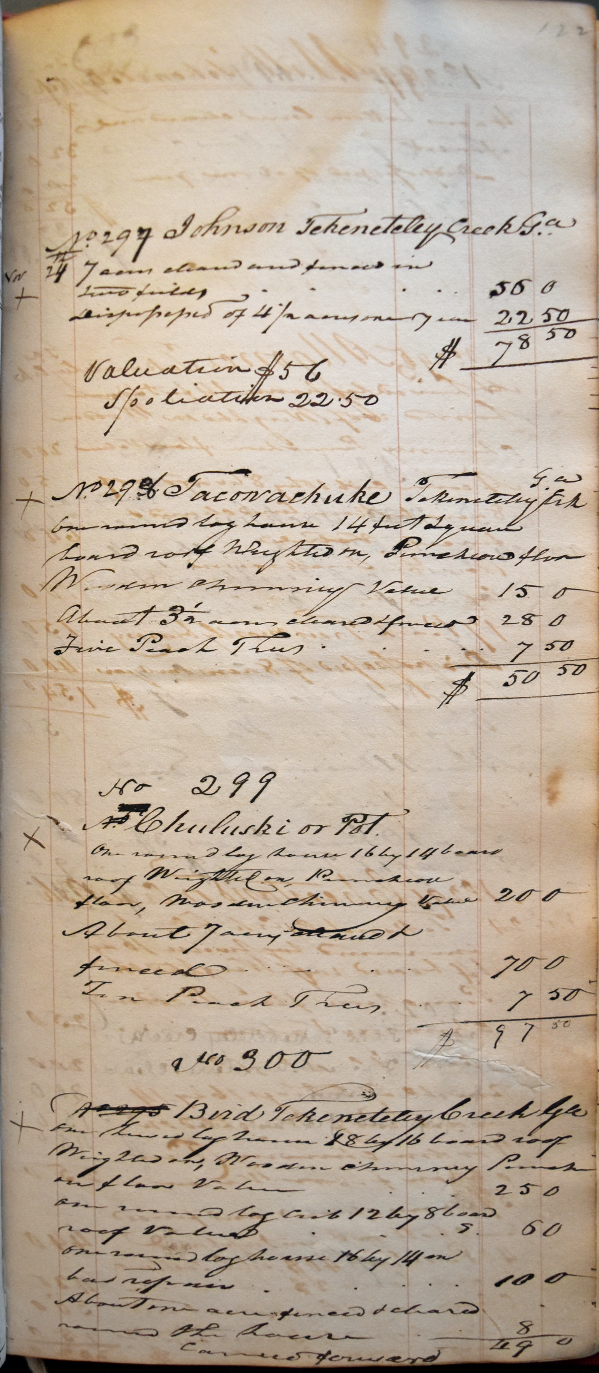 122
No 297 Johnson Tekeneteley Creek Ga
Nov 24 7 acres cleared and fenced in
two fields 56 0
Dispossessed of 4½ acres one year 22 50
$ 78 50
Valuation $56
Spoliation 22.50
Ga
No 298 Tacowachuke Tekeneteley Crk
One round log house 14 feet square
board roof Weighted on, Puncheon floor
Wooden Chimney Value 15 0
About 3½ acres cleared & fenced 28 0
Five Peach Trees 7 50
$ 50 50
No 299
No Chuluski or Pot
One round log house 16 by 14 board
roof Weighted on, Puncheon
floor, Wooden Chimney Value 20 0
About 7 acres cleared &
fenced 70 0
Ten Peach Trees 7 50
$ 97 50
No 300
No 295 Bird Tekeneteley Creek Ga
One hewed log house 18 by 16 board roof
Weighted on, Wooden chimney Punche
on floor Value 25 0
one round log crib 12 by 8 board
roof Value 6 0
one round log house 16 by 14 on
bad repair 10 0
About one acre fenced & cleared
round the house 8
Carried forward 49 0